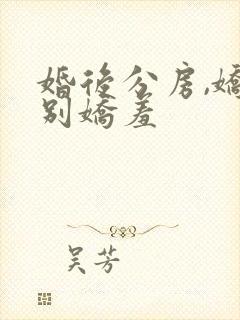 婚後分房,嬌
別嬌羞
吴芳